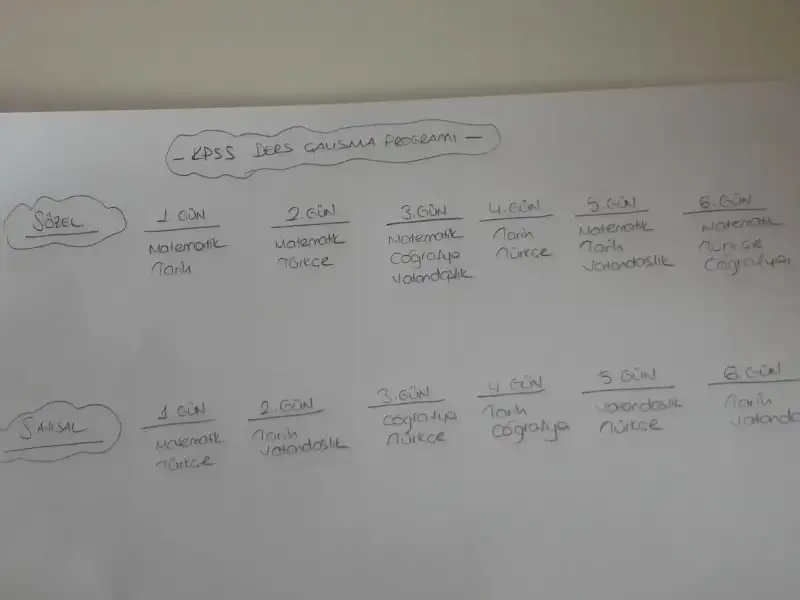 - KPSS DERS ÇALISMA PROGRAMI -
SÖZEL
1 GÜN
Matematik
Tarih
2. GÜN
Matematik
Türkçe
3. GÜN
Matematik
Coğrafya
Vatandaşlık
4. GÜN
Tarih
Türkçe
5. GÜN
Matematik
Tarih
Vatandaşlık
6. GÜN
Matematik
Türkçe
Coğrafya
SAYISAL
1 GÜN
Matematik
Türkçe
2. GÜN
Tarih
Vatandaşlık
3. GÜN
Coğrafya
Türkçe
4 GÜN
Tarih
Coğrafya
5 GÜN
Vatandaşlık
Türkçe
6. GÜN
Tarih
Vatanda